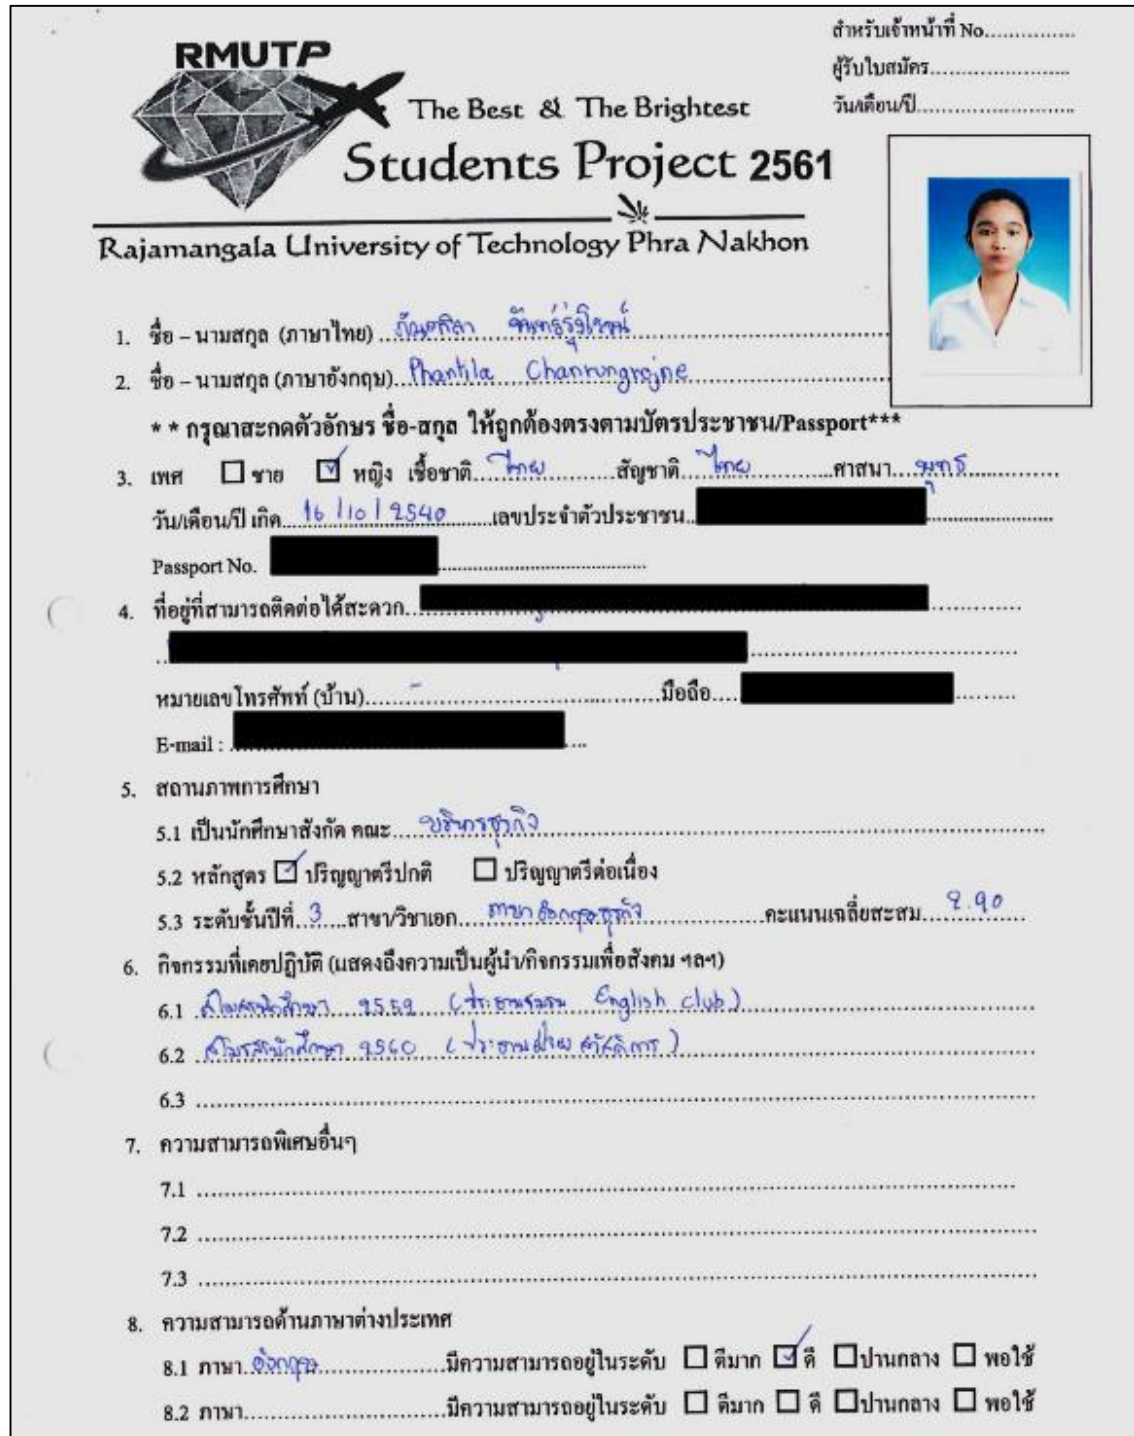 สำหรับเจ้าหน้าที่ No...............
ผู้รับใบสมัคร.......................
วัน/เดือน/ปี..........................
RMUTP
The Best & The Brightest
Students Project 2561
Rajamangala University of Technology Phra Nakhon
1. ชื่อ – นามสกุล (ภาษาไทย) ภัณฑิลา จันทร์รุ่งโรจน์
2. ชื่อ – นามสกุล (ภาษาอังกฤษ) Phantila Chanrungrojne
* * กรุณาสะกดตัวอักษร ชื่อ-สกุล ให้ถูกต้องตรงตามบัตรประชาชน/Passport***
3. เพศ ☐ ชาย ☑ หญิง เชื้อชาติ ไทย สัญชาติ ไทย ศาสนา พุทธ
วัน/เดือน/ปี เกิด 16/10/2540 เลขประจำตัวประชาชน
Passport No.
4. ที่อยู่ที่สามารถติดต่อได้สะดวก
หมายเลขโทรศัพท์ (บ้าน) - มือถือ
E-mail :
5. สถานภาพการศึกษา
5.1 เป็นนักศึกษาสังกัด คณะ บริหารธุรกิจ
5.2 หลักสูตร ☑ ปริญญาตรีปกติ ☐ ปริญญาตรีต่อเนื่อง
5.3 ระดับชั้นปีที่ 3 สาขา/วิชาเอก ภาษาอังกฤษธุรกิจ คะแนนเฉลี่ยสะสม 2.90
6. กิจกรรมที่เคยปฏิบัติ (แสดงถึงความเป็นผู้นำ/กิจกรรมเพื่อสังคม ฯลฯ)
6.1 สโมสรนักศึกษา 2559 (ประธานชมรม English club)
6.2 สโมสรนักศึกษา 2560 (ประธานฝ่าย สวัสดิการ)
6.3
7. ความสามารถพิเศษอื่นๆ
7.1
7.2
7.3
8. ความสามารถด้านภาษาต่างประเทศ
8.1 ภาษา อังกฤษ มีความสามารถอยู่ในระดับ ☐ ดีมาก ☑ ดี ☐ ปานกลาง ☐ พอใช้
8.2 ภาษา มีความสามารถอยู่ในระดับ ☐ ดีมาก ☐ ดี ☐ ปานกลาง ☐ พอใช้